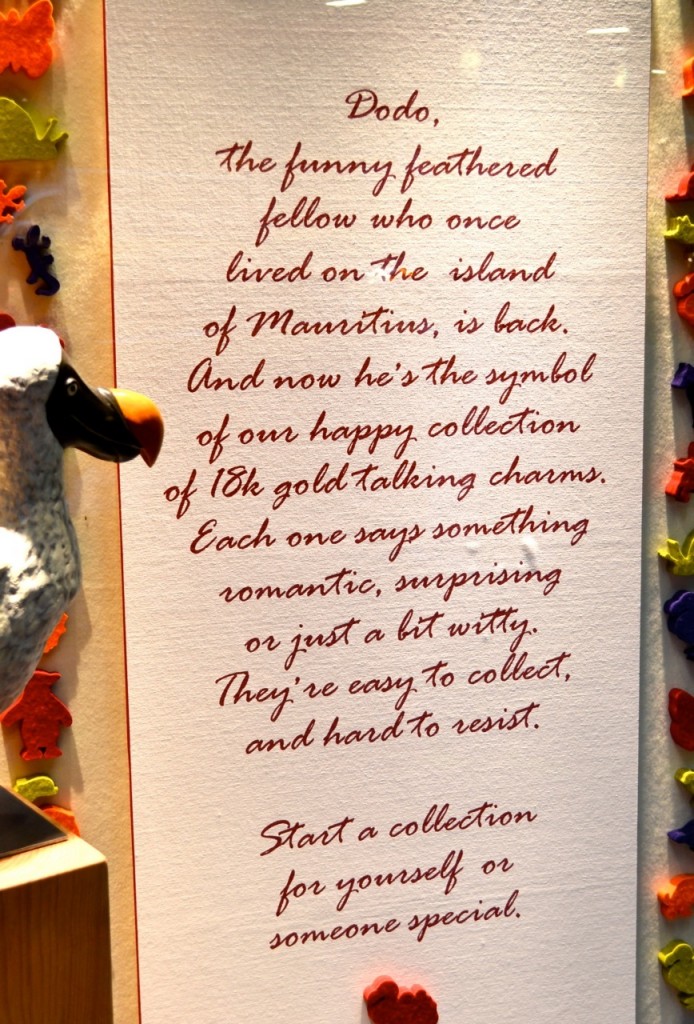 Dodo,
the funny feathered
fellow who once
lived on the island
of Mauritius, is back.
And now he's the symbol
of our happy collection
of 18k gold talking charms.
Each one says something
romantic, surprising
or just a bit witty.
They're easy to collect,
and hard to resist.
Start a collection
for yourself or
someone special.